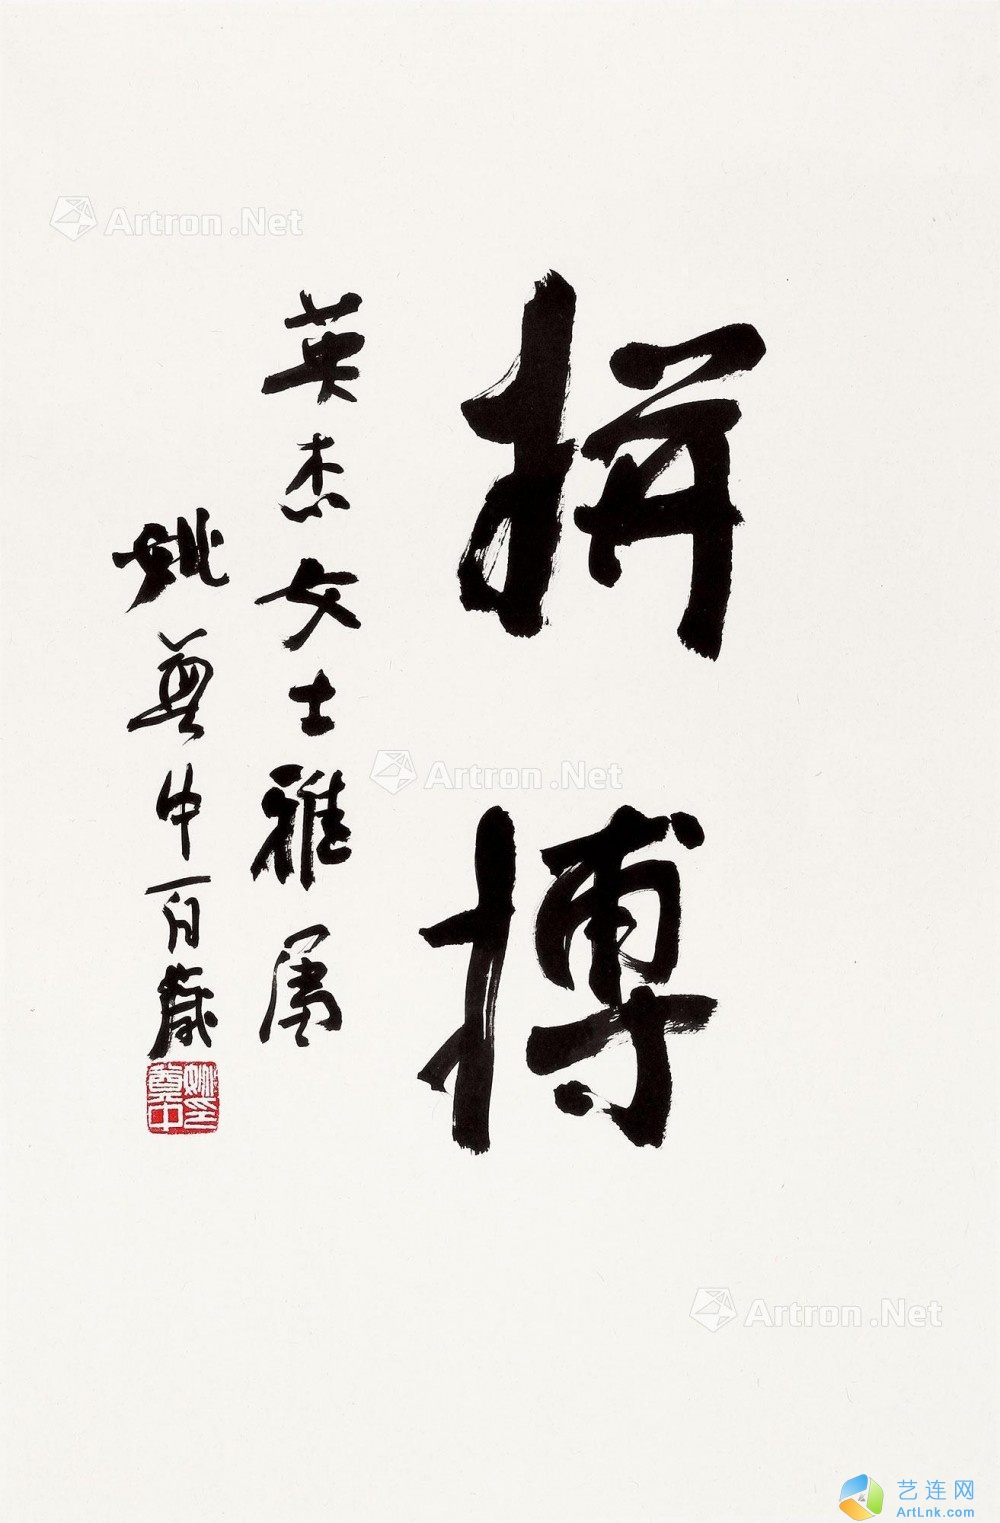 拼搏
英杰女士雅属
姚奠中百岁
姚奠中印
Artron.Net
Artron.Net
Artron.Net
艺连网
ArtLnk.com